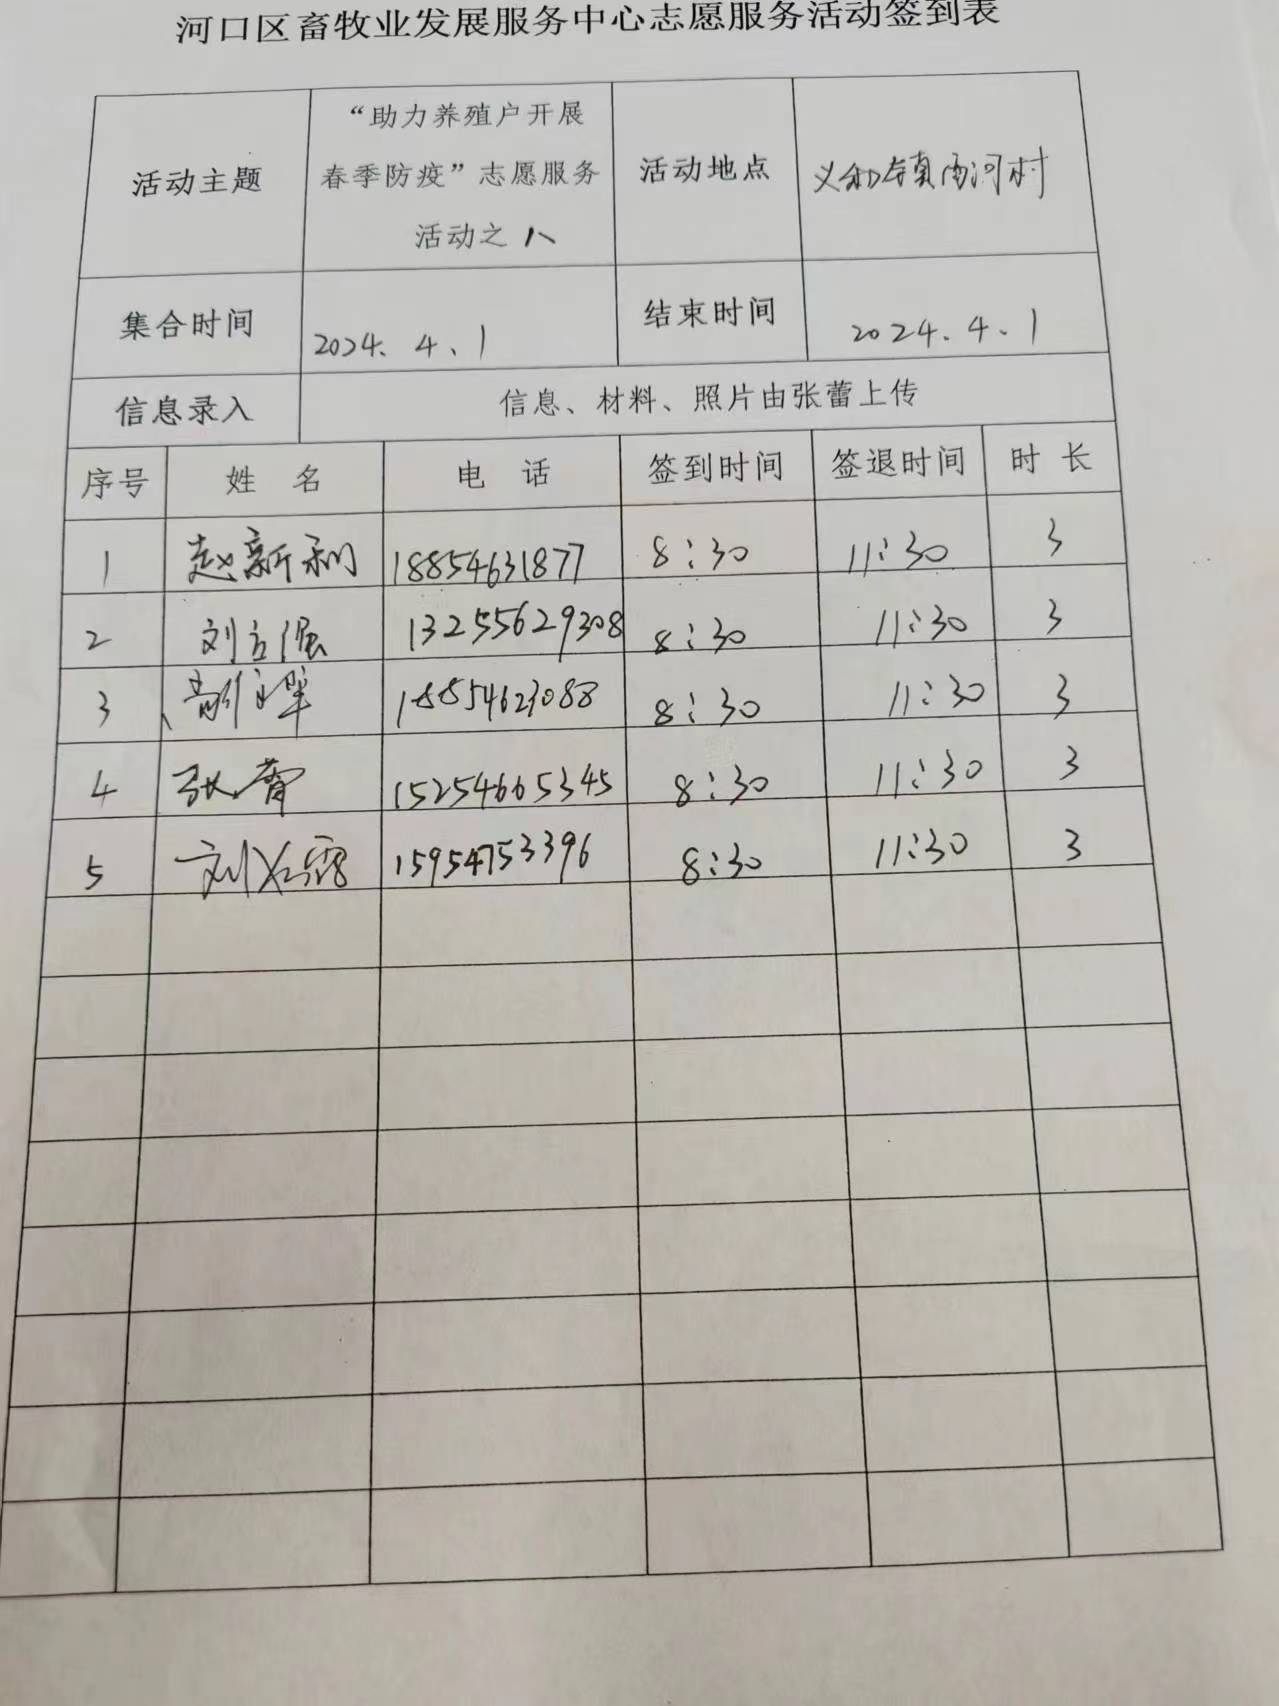 河口区畜牧业发展服务中心志愿服务活动签到表
活动主题
“助力养殖户开展
春季防疫”志愿服务
活动之 八
活动地点
义和镇西河村
集合时间
2024.4.1
结束时间
2024.4.1
信息录入
信息、材料、照片由张蕾上传
序号 姓 名 电 话 签到时间 签退时间 时 长
1 赵新利 18854631877 8:30 11:30 3
2 刘立强 13255629308 8:30 11:30 3
3 18854623088 8:30 11:30 3
4 张蕾 15254665345 8:30 11:30 3
5 刘 15954753396 8:30 11:30 3